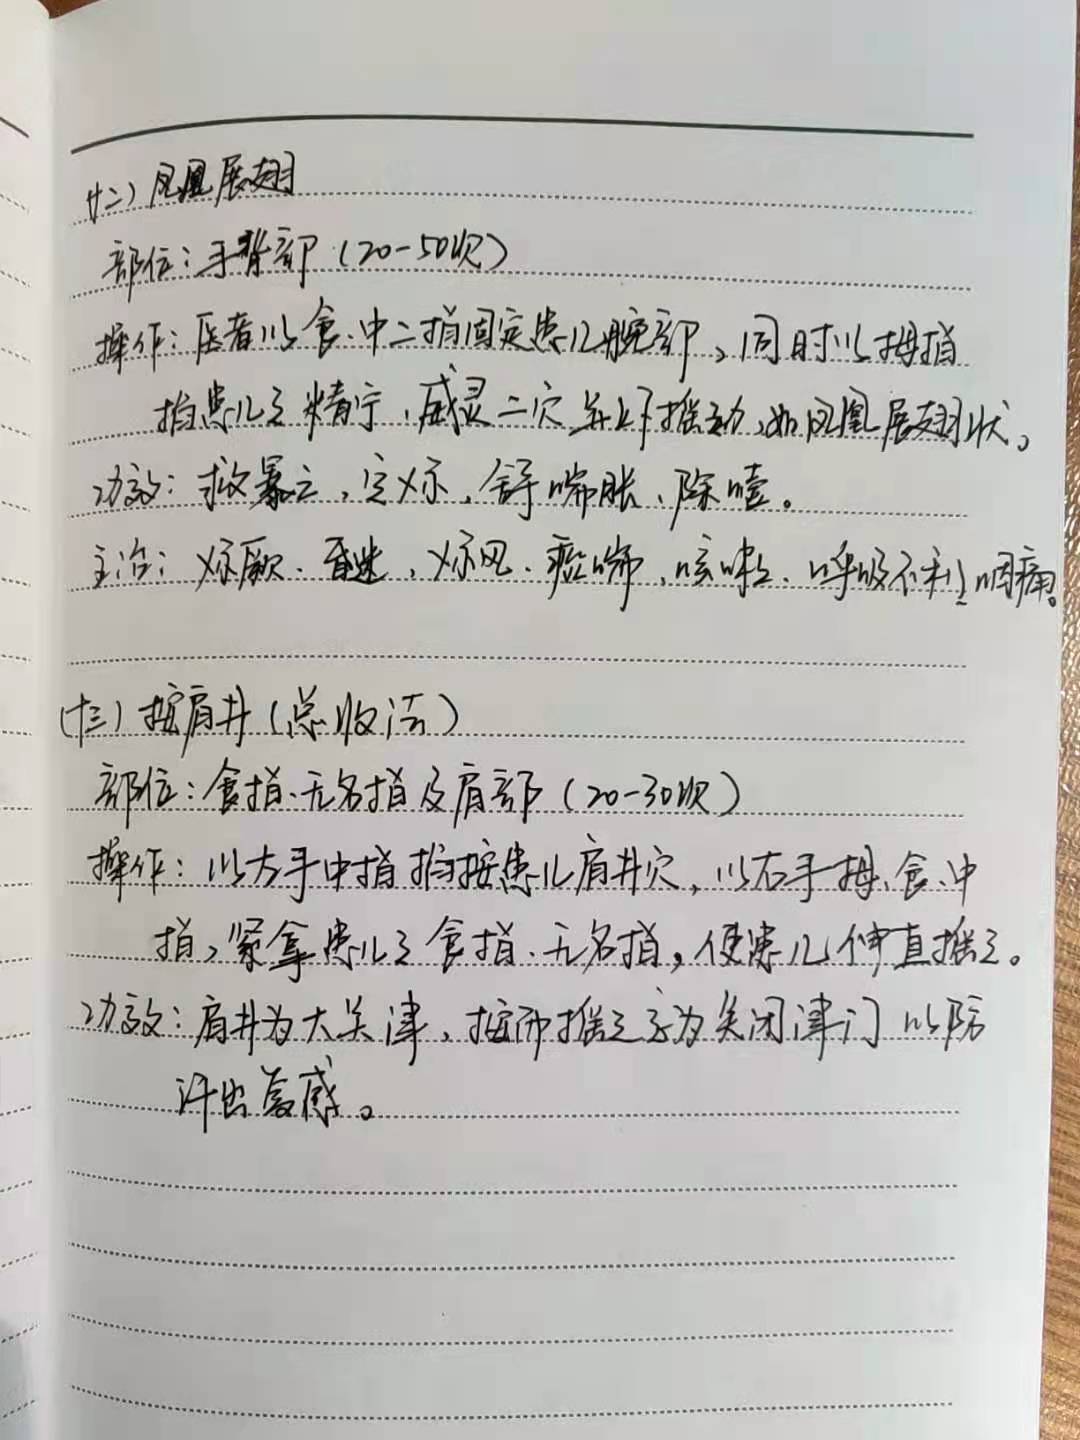 (十二) 凤凰展翅
部位：手背部（20-50次）
操作：医者以食、中二指固定患儿腕部，同时以拇指
掐患儿之精宁、威灵二穴并上下摇动，如凤凰展翅状。
功效：救暴亡，定义示，舒喘胀、除噎。
主治：义示厥、昏迷，义示风、痰喘，咳嗽、呼吸不利，咽痛。
(十三) 按肩井（总收法）
部位：食指、无名指及肩部（20-30次）
操作：以左手中指掐按患儿肩井穴，以右手拇、食、中
指，紧拿患儿之食指、无名指，使患儿伸直摇之。
功效：肩井为大关津，按而摇之意为关闭津门以防
汗出复感。